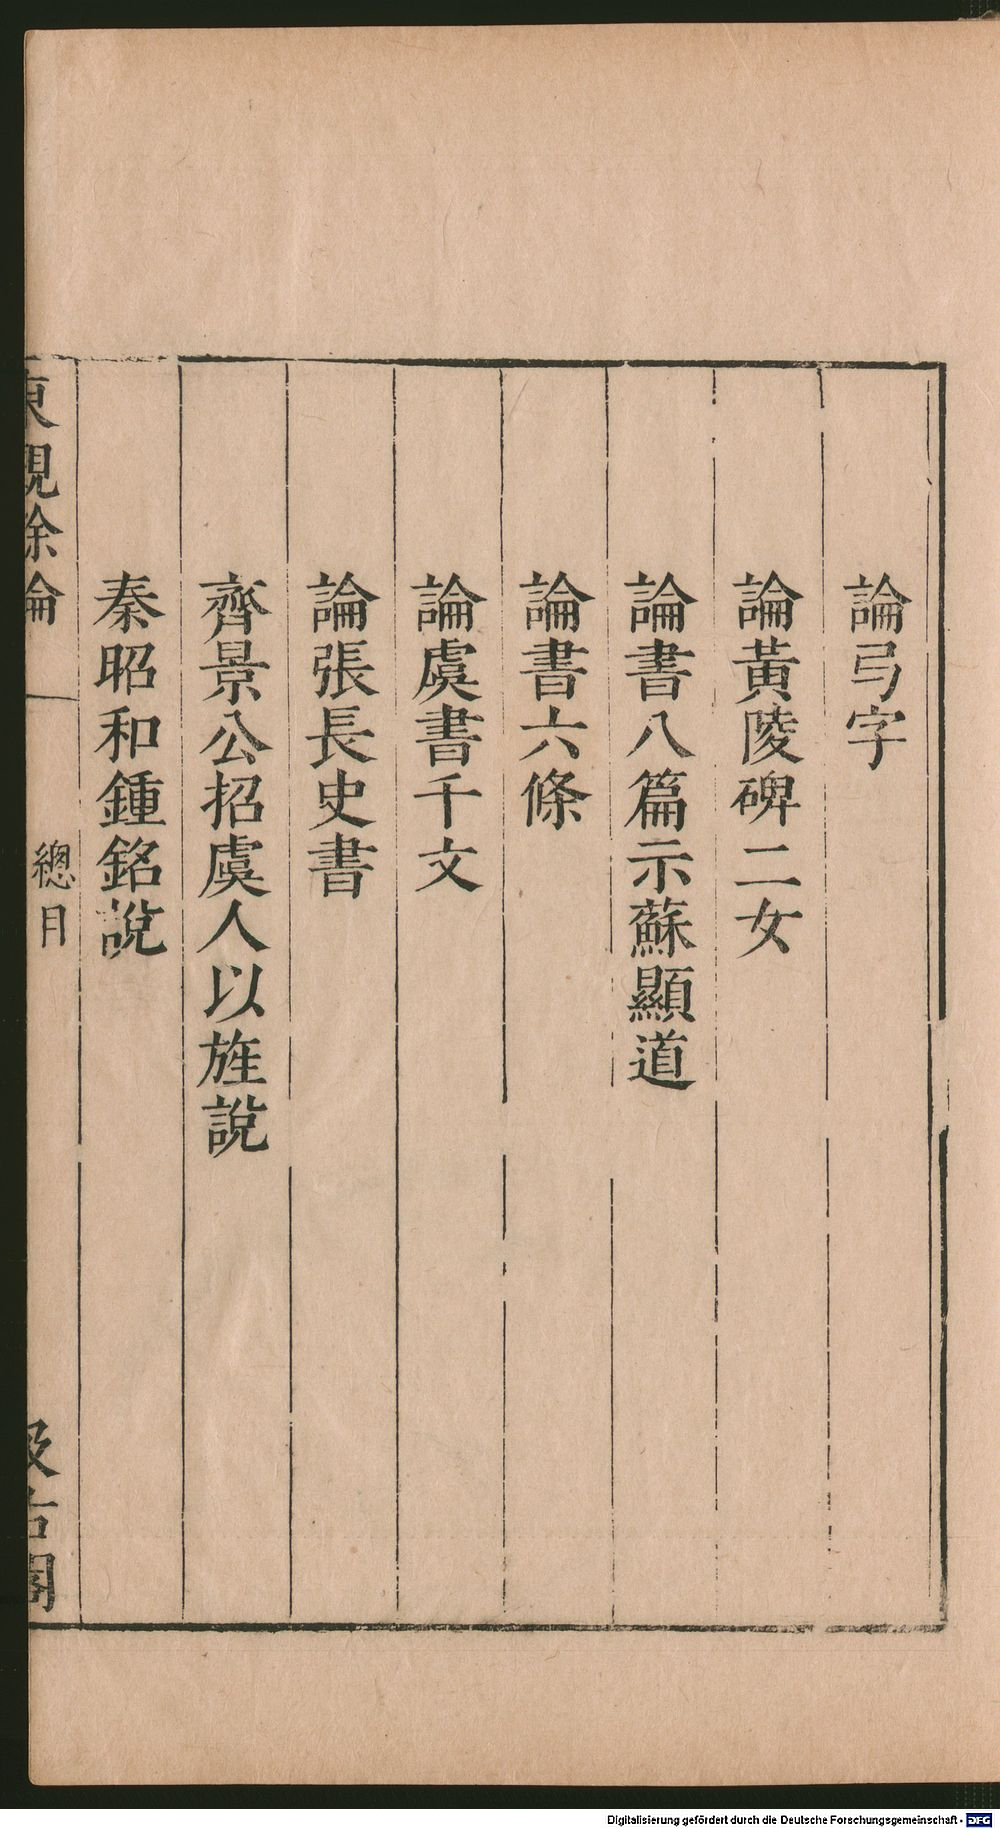 論弓字
論黃陵碑二女
論書八篇示蘇顯道
論書六條
論虞書千文
論張長史書
齊景公招虞人以旌說
秦昭和鍾銘說
東觀餘論
總目
汲古閣
Digitalisierung gefördert durch die Deutsche Forschungsgemeinschaft - DFG